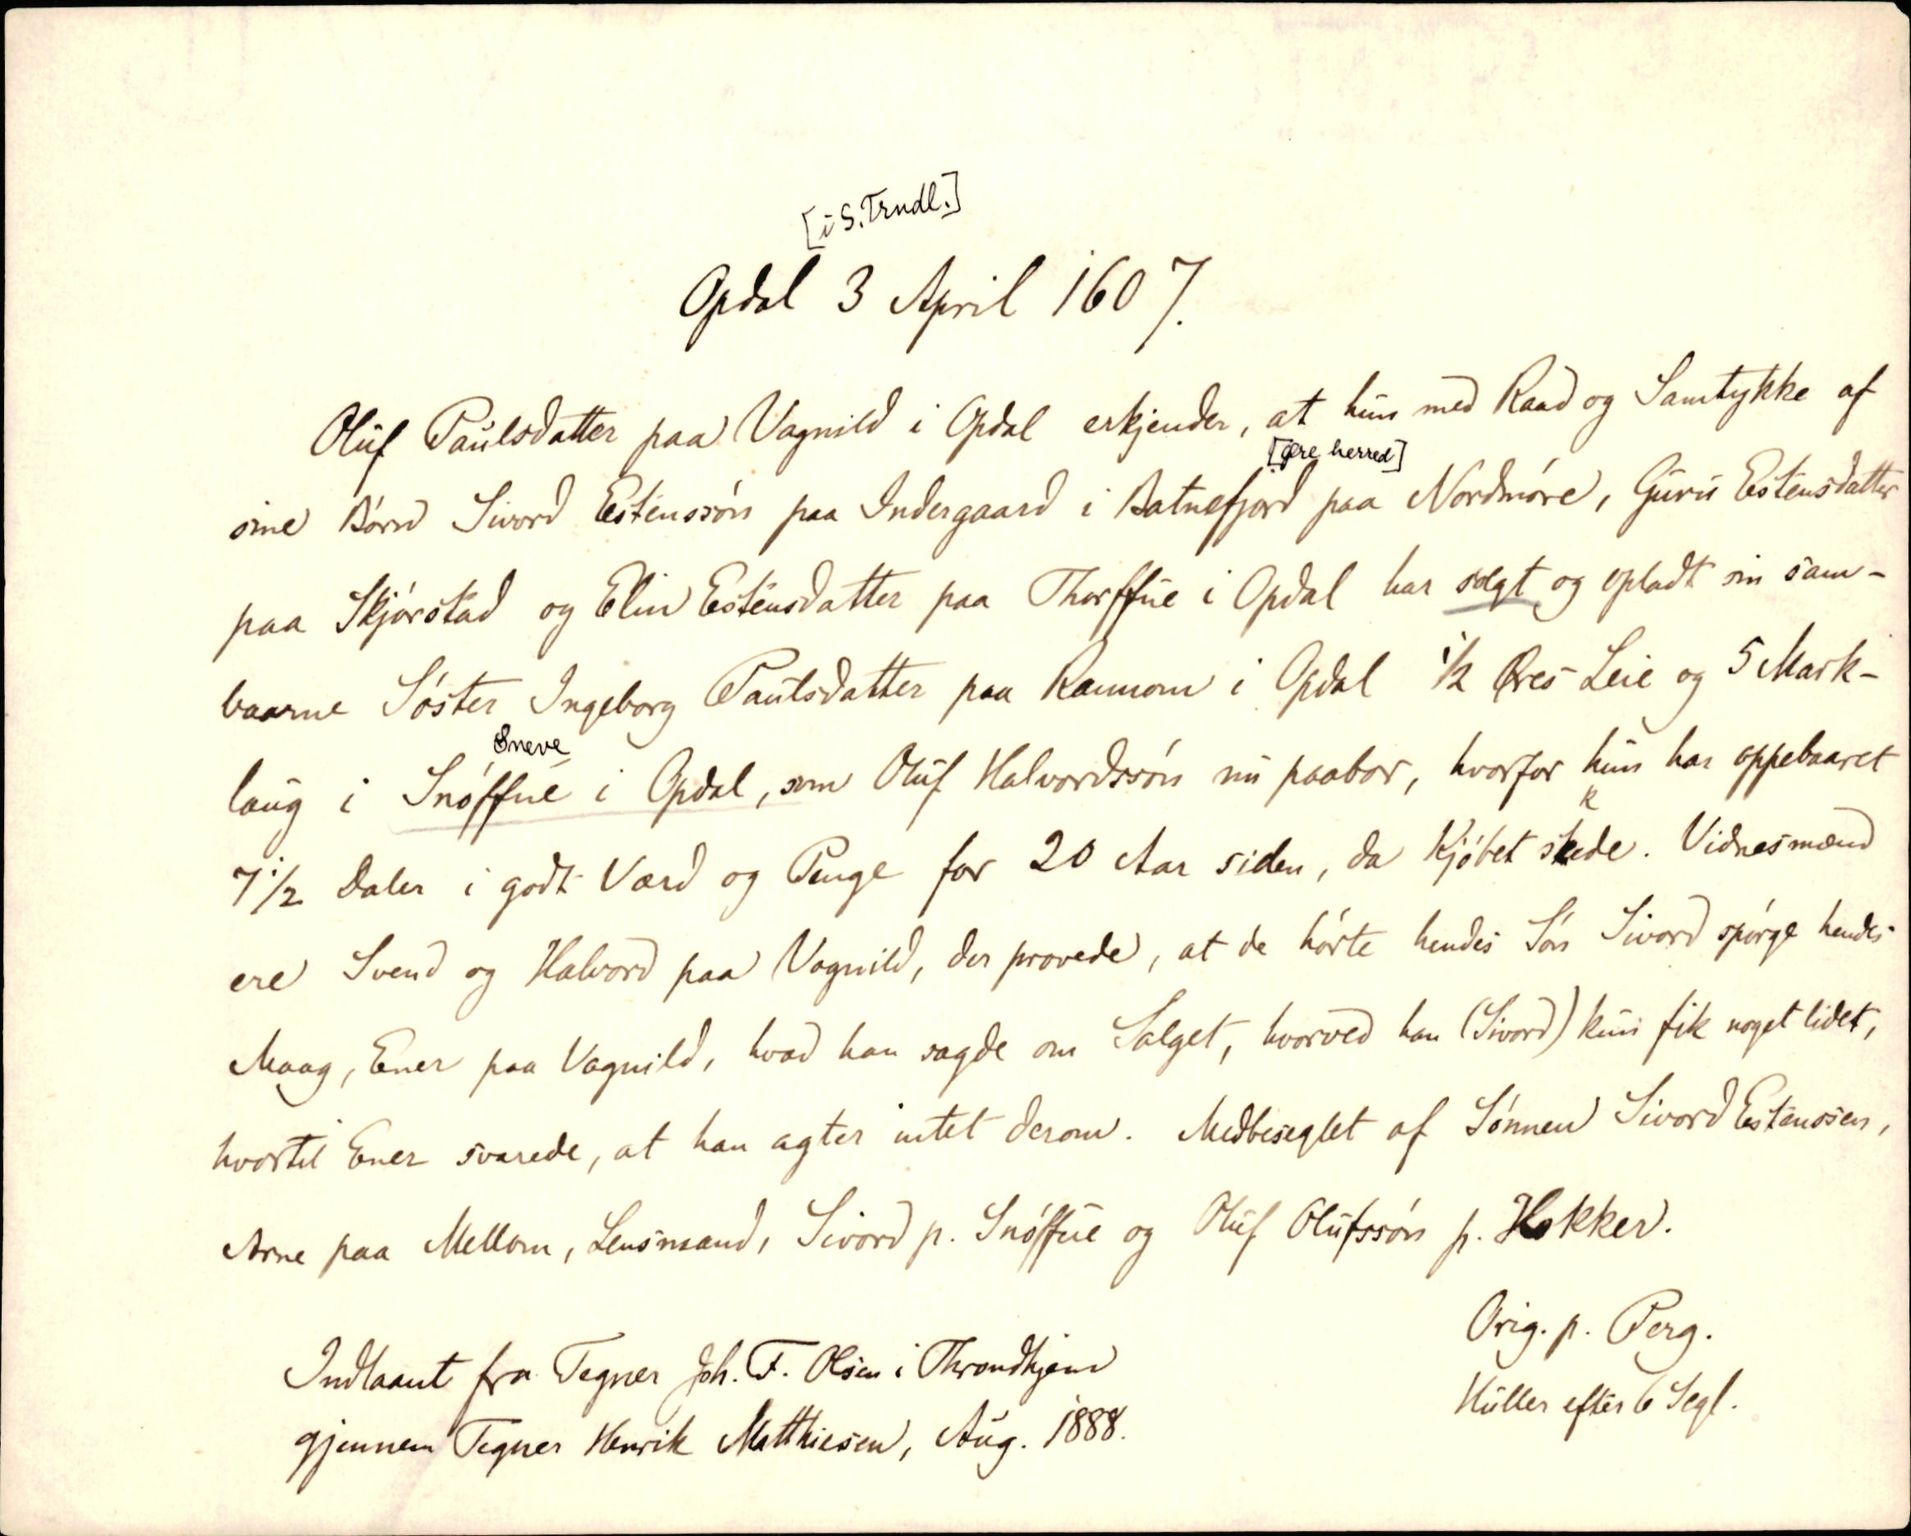 [i S. Trndl.]
Opdal 3 April 1607.
Oluf Paulsdatter paa Vagnild i Opdal erkjender, at hun med Raad og Samtykke af
[Øre herred]
sine Børn Sivord Estenssøn paa Indergaard i Batnefjord paa Nordmøre, Guru Estensdatter
paa Skjørstad og Elin Estensdatter paa Thorffue i Opdal har solgt og opladt sin sam-
baarne Søster Ingeborg Paulsdatter paa Rannom i Opdal ½ Øres Leie og 5 Mark-
Sneve
laug i Snøffue i Opdal, som Oluf Halvordssøn nu paabor, hvorfor hun har oppebaaret
k
7½ Daler i godt Værd og Penge for 20 Aar siden, da Kjøbet skede. Vidnesmænd
ere Svend og Halvord paa Vognild, der prøvede, at de hørte hendes Søn Sivord spørge hendes
Maag, Ener paa Vagnild, hvad han sagde om Salget, hvorved han (Sivord) kun fik noget lidet,
hvortil Ener svarede, at han agter intet derom. Medbeseglet af Sønnen Sivord Estenssen,
Arne paa Mellom, Lensmand, Sivord p. Snøffue og Oluf Olufssøn p. Hokker.
Orig. p. Perg.
Huller efter 6 Segl.
Indlaant fra Tegner Joh. F. Olsen i Throndhjem
gjennem Tegner Henrik Matthiesen, Aug. 1888.